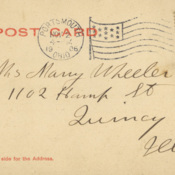 PORTSMOUTH
OHIO
POST CARD
Mrs Mary Wheeler
1102 Hamp St
Quincy
Ill
side for the Address.